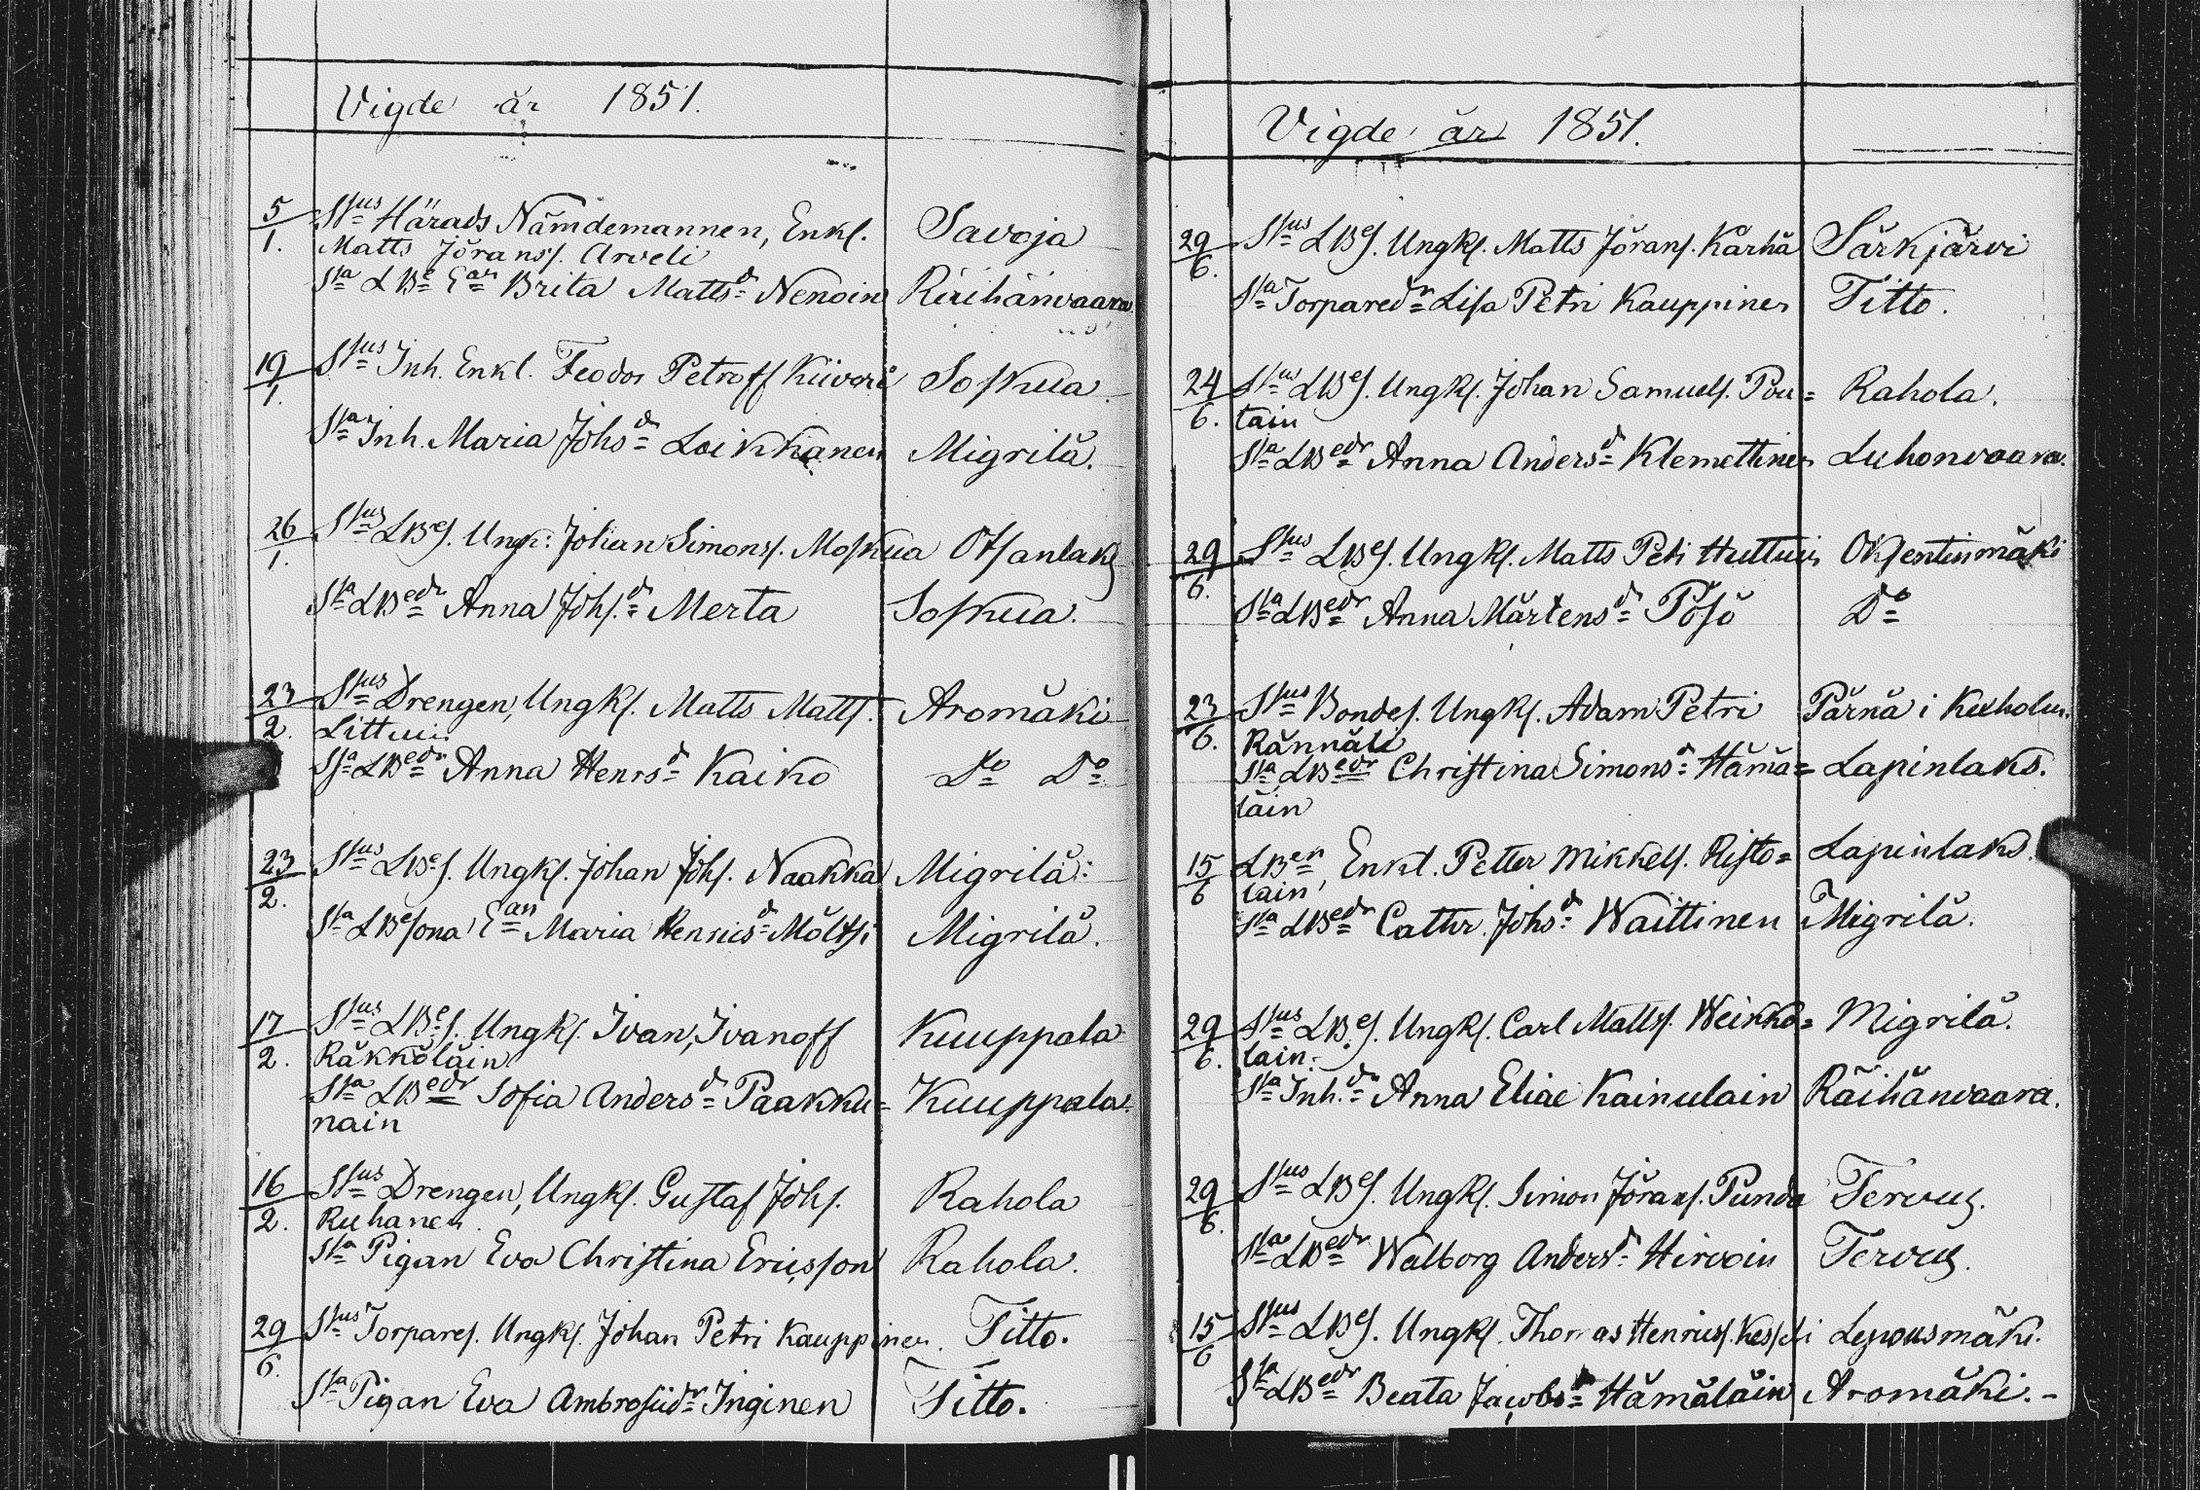 Vigde år 1851.
5/1. Spsus Härads Nämdemannen, Enkl. Savoja
Matts Jöranss. Arveli
Spsa LBe Ean Brita Mattsdr Nenoin Räihänvaara
19/1. Spsus Inh. Enkl. Feodor Petroff Kiiveri Soskua.
Spsa Inh. Maria Johsdr Loikkanen Migrilä.
26/1. Spsus LBes. Ungk: Johan Simonss. Moskua Otsanlax
Spsa LBedr Anna Johs.dr Merta Soskua.
23/2. Spsus Drengen, Ungks. Matts Matts. Aromäki
Littuin
Spsa LBedr Anna Henrsdr Kaiko Do Do
23/2. Spsus LBes. Ungks. Johan Johs. Naakka Migrilä:
Spsa LBesona Ean Maria Henricsdr Möltsi Migrilä.
17/2. Spsus LBes. Ungks. Ivan, Ivanoff Kuuppala
Räkköläin
Spsa LBedr Sofia Andersdr Paakku= Kuuppala.
nain
16/2. Spsus Drengen, Ungks. Gustaf Johs. Rahola
Ruhanen.
Spsa Pigan Eva Christina Ericsson Rahola.
29/6. Spsus Torpares. Ungks. Johan Petri Kauppinen. Titto.
Spsa Pigan Eva Ambrosiidr Inginen Titto.
Vigde år 1851.
29/6. Spsus LBes. Ungks. Matts Jörans. Karhä Särkjärvi
Spsa Torparedr Lisa Petri Kauppinen Titto.
24/6. Spsus LBes. Ungks. Johan Samuels. Pou= Rahola.
tain
Spsa LBedr Anna Andersdr Klemettinen Luhonvaara.
29/6. Spsus LBes. Ungks. Matts Petri Huttuin Oksentinmäki
Spsa LBedr Anna Mårtensdr Pösö Do
23/6. Spsus Bondes. Ungks. Adam Petri Pärnä i Kexholm.
Rännäli
Spsa LBedr Christina Simonsdr Hämä= Lapinlaks.
läin
15/6 LBen Enkl. Petter Mikkels. Risto= Lapinlaks.
lain,
Spsa LBedr Cathr. Johsdr Waittinen Migrilä.
29/6. Spsus LBes. Ungks. Carl Matts. Weikko= Migrilä.
lain.
Spsa Inh.dr Anna Eliae Kainulain Räihänvaara.
29/6. Spsus LBes. Ungks. Simon Jörans. Punda Tervus.
Spsa LBedr Walborg Andersdr Hirvoin Tervus.
15/6 Spsus LBes. Ungks. Thomas Henrics. Kesseli Lepousmäki.
Spsa LBedr Beata Jacobsdr Hämäläin Aromäki.-